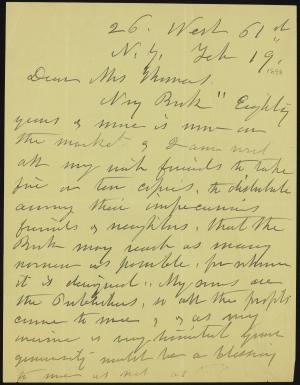 26. West 61 st
N. Y. Feb 19, 1898
Dear Mrs Thomas.
My Book "Eighty
years & more is now on
the market & I am
all my rich friends to take
five or ten copies, to distribute
among their impecunious
friends & neighbors, that the
Book may reach as many
women as possible, for whom
it is designed. My sons are
the Publishers, so all the profits
come to me, & as my
income is very limited your
generosity might be a blessing
to me as well as to